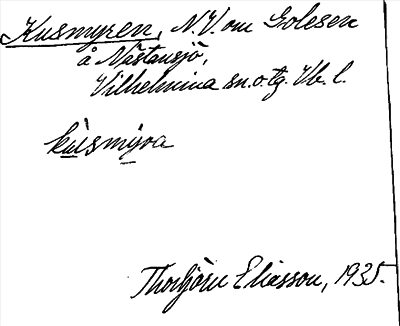 Kusmyren, N.V. om Golesen
å Nästansjö,
Vilhelmina sn. o. tg. Vb. l.
kùsmýra
Thorbjörn Eliasson, 1935.